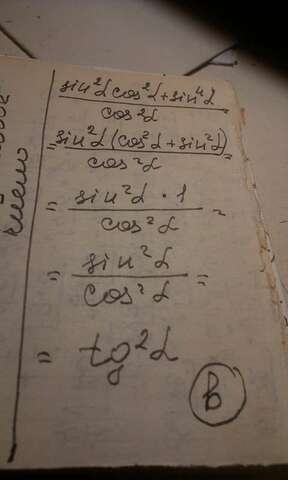 sin²α cos²α + sin⁴α
cos²α
= sin²α (cos²α + sin²α) =
cos²α
= sin²α · 1 =
cos²α
= sin²α =
cos²α
= tg²α
в
число